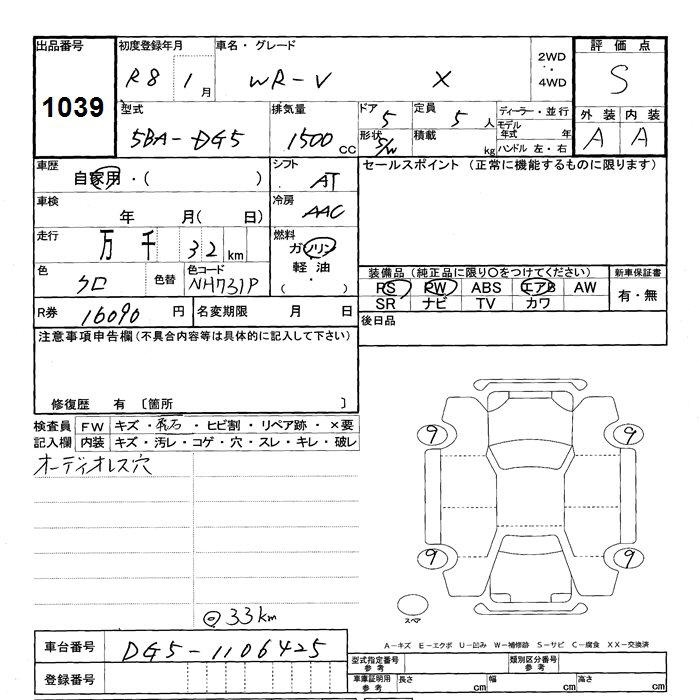 出品番号 初度登録年月 車名・グレード 評価点
1039 R8 1月 WR-V X 2WD ・・ 4WD S
型式 排気量 ドア 5 定員 5人 ディーラー・並行 外装 内装
5BA-DG5 1500cc 形状 S/W 積載 kg モデル年式 年 A A
ハンドル 左・右
車歴 自家用・( ) シフト AT セールスポイント(正常に機能するものに限ります)
車検 年 月( 日) 冷房 AAC
走行 万 千 32km 燃料 ガソリン
軽油
・
( )
色 クロ 色替 色コード NH731P
装備品(純正品に限り〇をつけてください) 新車保証書
PS PW ABS エアB AW 有・無
SR ナビ TV カワ
R券 16090円 名変期限 月 日 後日品
注意事項申告欄(不具合内容等は具体的に記入して下さい)
修復歴 有 〔箇所 〕
検査員 FW キズ・飛石・ヒビ割・リペア跡・×要
記入欄 内装 キズ・汚レ・コゲ・穴・スレ・キレ・破レ
オーディオレス穴
9 9
9 9
スペア
@33km
A-キズ E-エクボ U-凹み W-補修跡 S-サビ C-腐食 XX-交換済
車台番号 DG5-1106425
型式指定番号 参考 類別区分番号 参考
登録番号 車庫証明用 参考 長さ cm 幅 cm 高さ cm